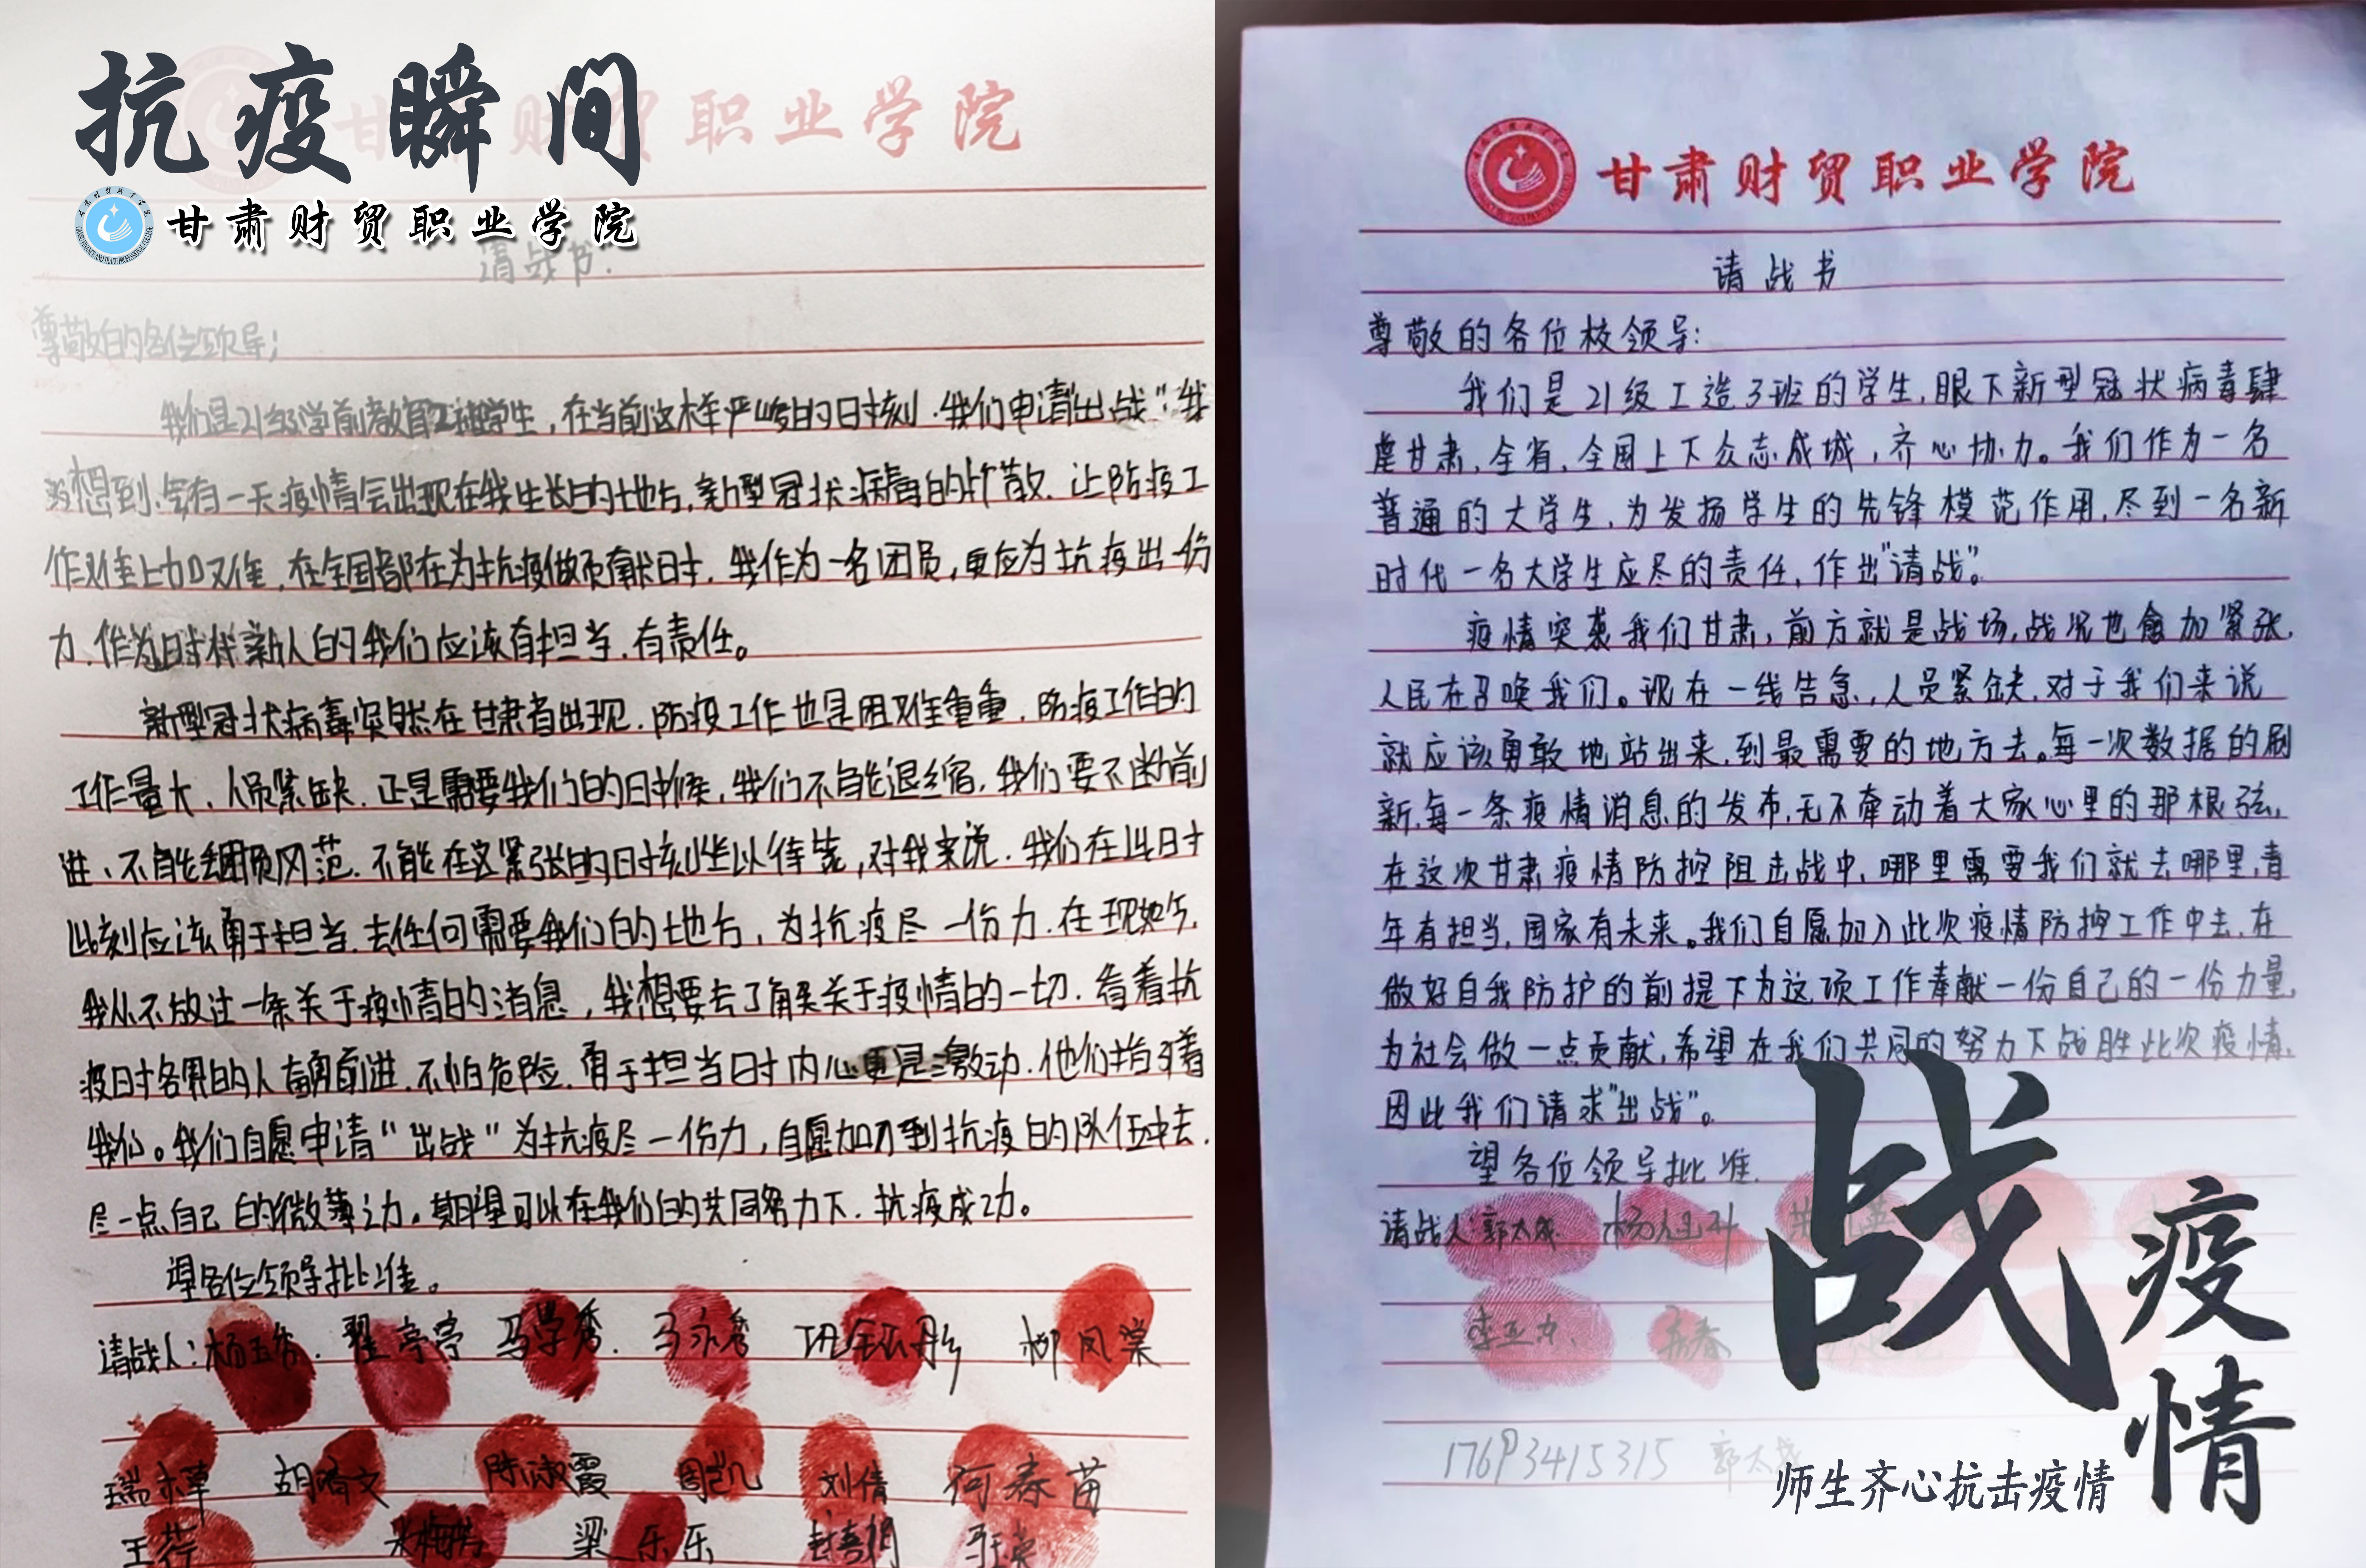 抗疫瞬间
甘肃财贸职业学院
甘肃财贸职业学院
请战书
尊敬的各位领导;
我们是21级学前教育2班学生,在当前这样严峻的时刻.我们申请出战":我
没想到.会有一天疫情会出现在我生长的地方,新型冠状病毒的扩散.让防疫工
作难上加难,在全国都在为抗疫做贡献时.我作为一名团员,更应为抗疫出一份
力.作为时代新人的我们应该有担当.有责任。
新型冠状病毒突然在甘肃省出现.防疫工作也是困难重重.防疫工作的
工作量大.人员紧缺.正是需要我们的时候,我们不能退缩.我们要不断前
进、不能丢团员风范.不能在这紧张的时刻坐以待毙,对我来说.我们在此时
此刻应该勇于担当.去任何需要我们的地方,为抗疫尽一份力.在现如今.
我从不放过一条关于疫情的消息,我想要去了解关于疫情的一切.看着抗
疫时各界的人奋勇前进.不怕危险.勇于担当时内心更是激动.他们指引着
我们。我们自愿申请"出战"为抗疫尽一份力,自愿加入到抗疫的队伍中去.
尽一点自己的微薄之力。期望可以在我们的共同努力下.抗疫成功。
望各位领导批准。
请战人:杨玉秀.翟亭亭 马学秀.马永秀 巩金彤 柳凤棠
胡靖文 陈淑霞 周凯 刘倩 何春苗
王荇 梁乐乐
甘肃财贸职业学院
请战书
尊敬的各位校领导:
我们是21级工造3班的学生,眼下新型冠状病毒肆
虐甘肃,全省,全国上下众志成城,齐心协力。我们作为一名
普通的大学生,为发扬学生的先锋模范作用,尽到一名新
时代一名大学生应尽的责任,作出"请战"。
疫情突袭我们甘肃,前方就是战场,战况也愈加紧张,
人民在召唤我们。现在一线告急,人员紧缺,对于我们来说
就应该勇敢地站出来,到最需要的地方去。每一次数据的刷
新,每一条疫情消息的发布,无不牵动着大家心里的那根弦,
在这次甘肃疫情防控阻击战中,哪里需要我们就去哪里,青
年有担当,国家有未来。我们自愿加入此次疫情防控工作中去,在
做好自我防护的前提下为这项工作奉献一份自己的一份力量,
为社会做一点贡献,希望在我们共同的努力下战胜此次疫情。
因此我们请求"出战"。
望各位领导批准.
请战人:郭太成
17693415315 郭太成
战疫情
师生齐心抗击疫情